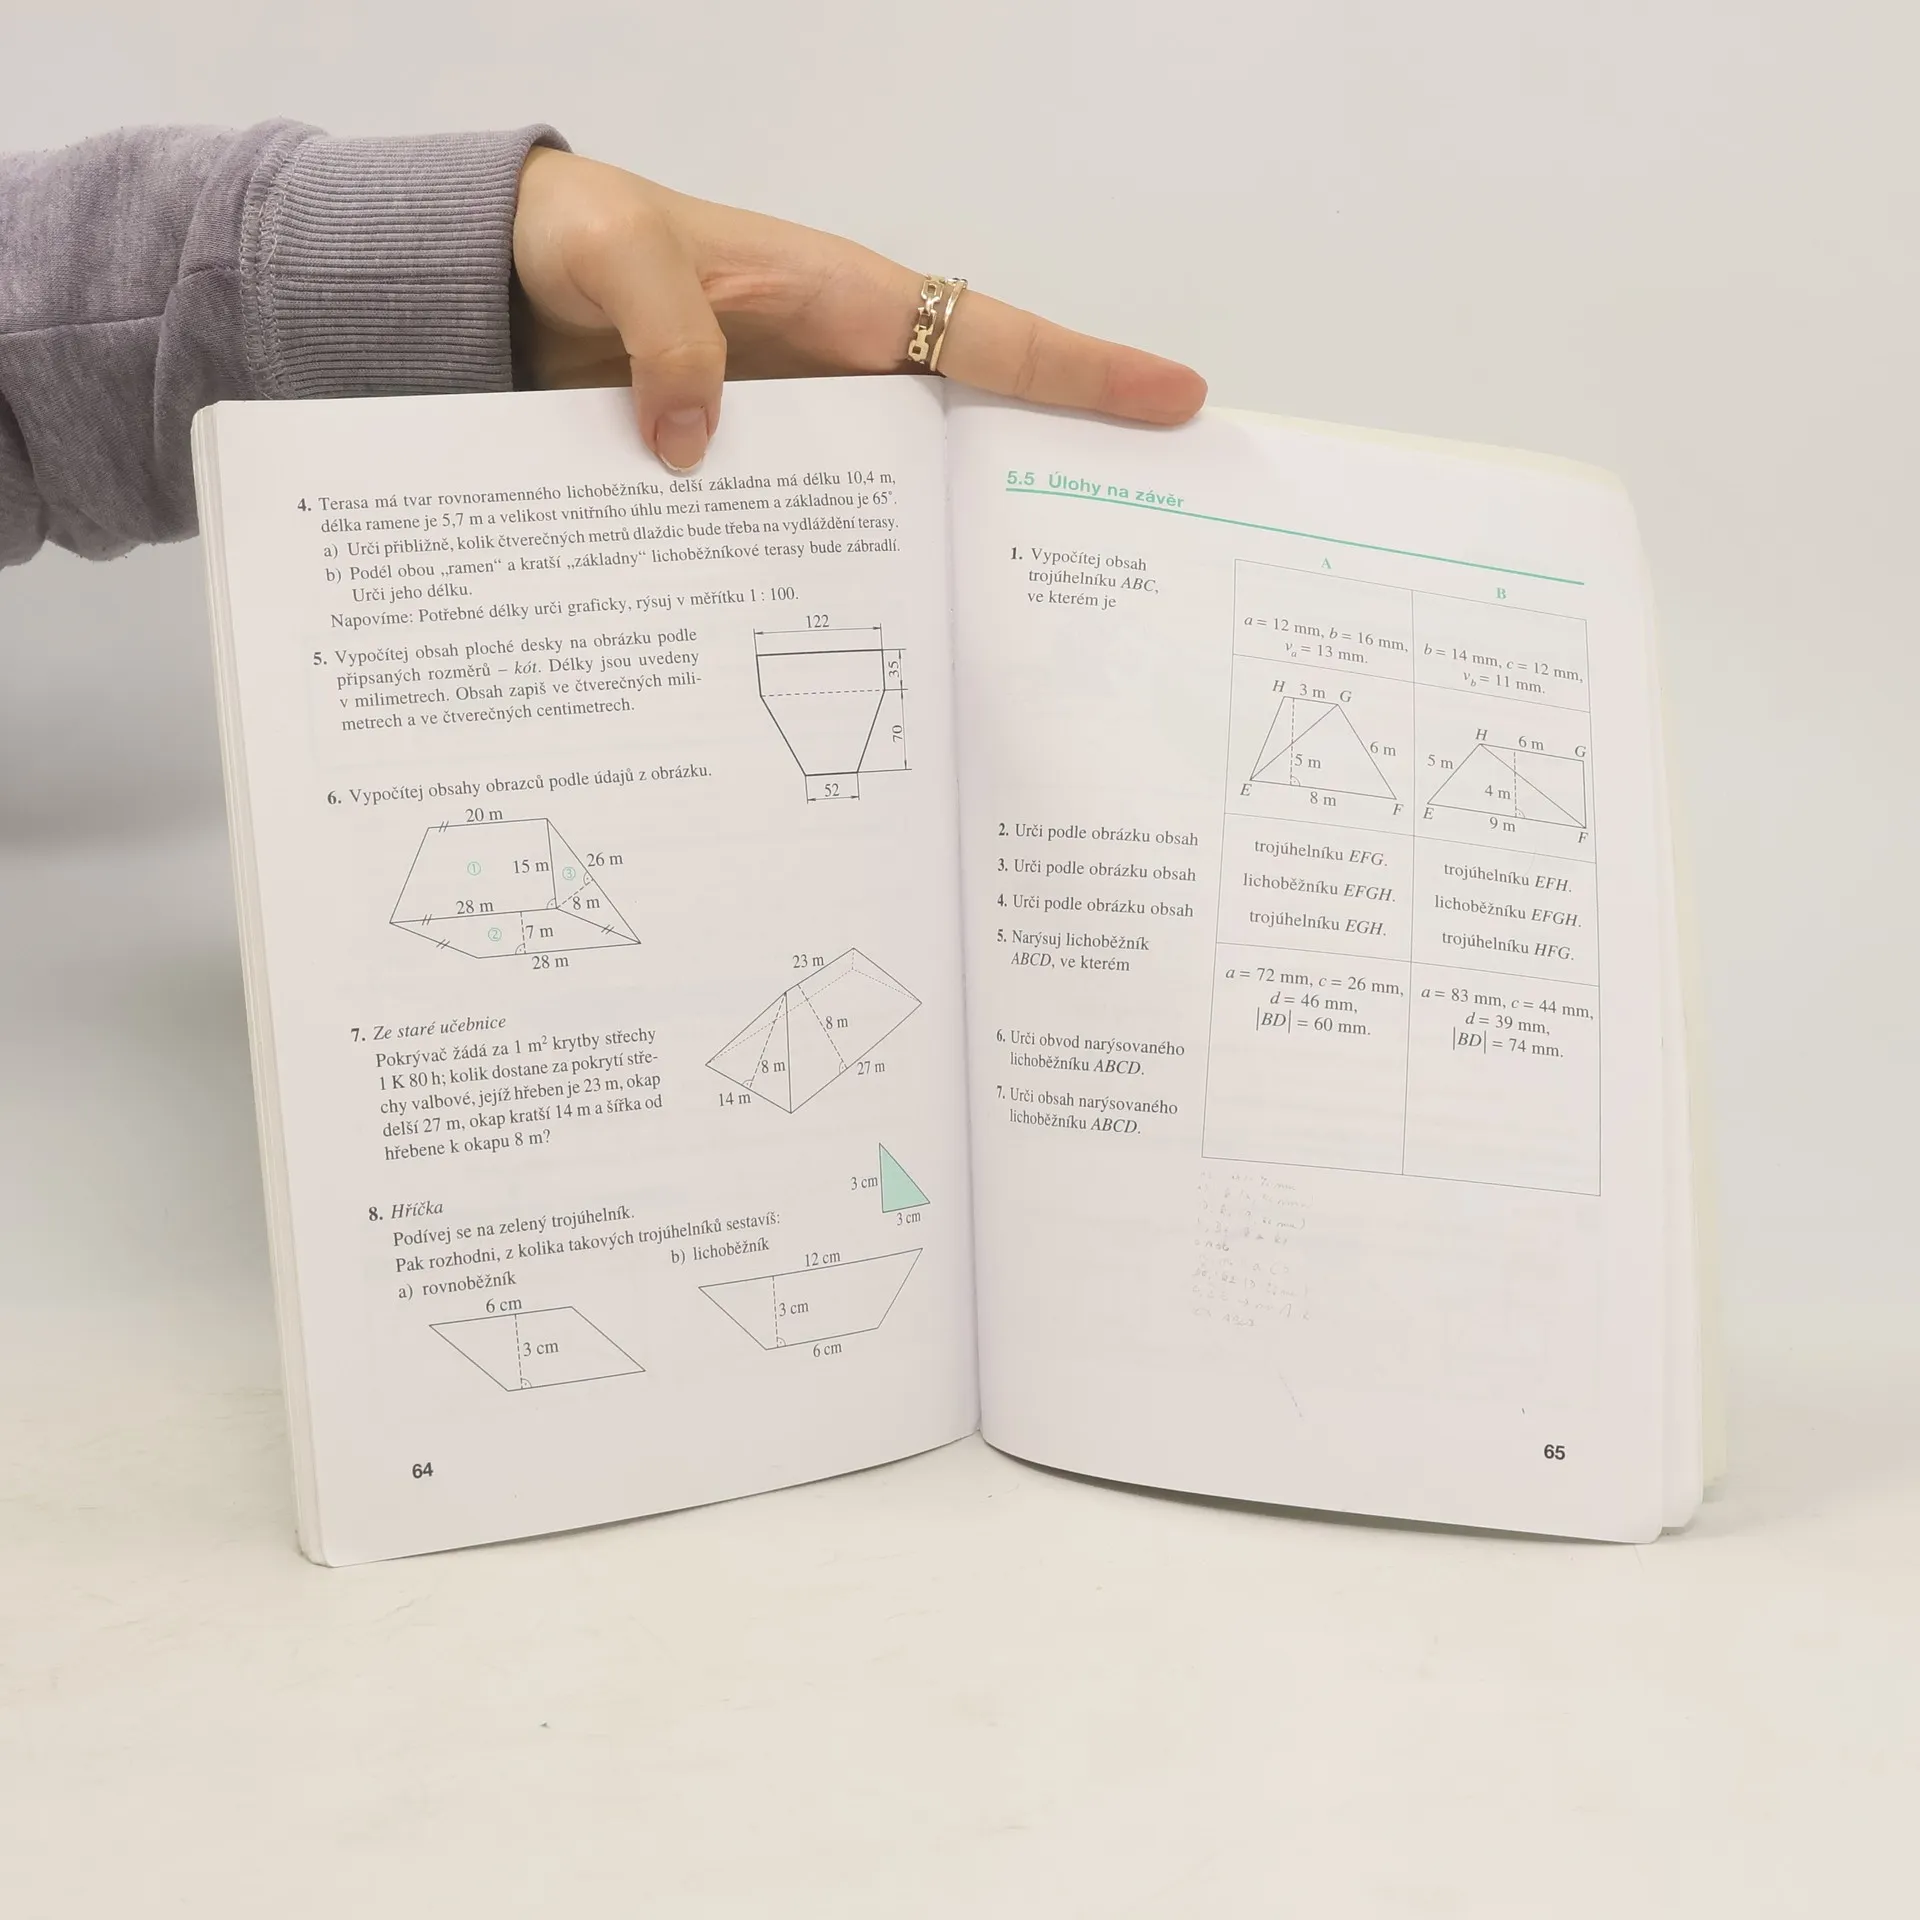 4. Terasa má tvar rovnoramenného lichoběžníku, delší základna má délku 10,4 m,
délka ramene je 5,7 m a velikost vnitřního úhlu mezi ramenem a základnou je 65°.
a) Urči přibližně, kolik čtverečných metrů dlaždic bude třeba na vydláždění terasy.
b) Podél obou „ramen“ a kratší „základny“ lichoběžníkové terasy bude zábradlí.
Urči jeho délku.
Napovíme: Potřebné délky urči graficky, rýsuj v měřítku 1 : 100.
5. Vypočítej obsah ploché desky na obrázku podle
připsaných rozměrů – kót. Délky jsou uvedeny
v milimetrech. Obsah zapiš ve čtverečných mili-
metrech a ve čtverečných centimetrech.
122
35
70
52
6. Vypočítej obsahy obrazců podle údajů z obrázku.
20 m
① 15 m ③ 26 m
28 m 8 m
② 7 m
28 m
7. Ze staré učebnice
Pokrývač žádá za 1 m² krytby střechy
1 K 80 h; kolik dostane za pokrytí stře-
chy valbové, jejíž hřeben je 23 m, okap
delší 27 m, okap kratší 14 m a šířka od
hřebene k okapu 8 m?
23 m
8 m
8 m 27 m
14 m
8. Hříčka
Podívej se na zelený trojúhelník.
Pak rozhodni, z kolika takových trojúhelníků sestavíš:
a) rovnoběžník
b) lichoběžník
3 cm
3 cm
6 cm
3 cm
12 cm
3 cm
6 cm
64
5.5 Úlohy na závěr
A
B
1. Vypočítej obsah
trojúhelníku ABC,
ve kterém je
a = 12 mm, b = 16 mm,
vₐ = 13 mm.
b = 14 mm, c = 12 mm,
v_b = 11 mm.
H 3 m G
6 m
5 m
E 8 m F
H 6 m G
5 m
4 m
E 9 m F
2. Urči podle obrázku obsah
trojúhelníku EFG.
trojúhelníku EFH.
3. Urči podle obrázku obsah
lichoběžníku EFGH.
lichoběžníku EFGH.
4. Urči podle obrázku obsah
trojúhelníku EGH.
trojúhelníku HFG.
5. Narýsuj lichoběžník
ABCD, ve kterém
a = 72 mm, c = 26 mm,
d = 46 mm,
|BD| = 60 mm.
a = 83 mm, c = 44 mm,
d = 39 mm,
|BD| = 74 mm.
6. Urči obvod narýsovaného
lichoběžníku ABCD.
7. Urči obsah narýsovaného
lichoběžníku ABCD.
65